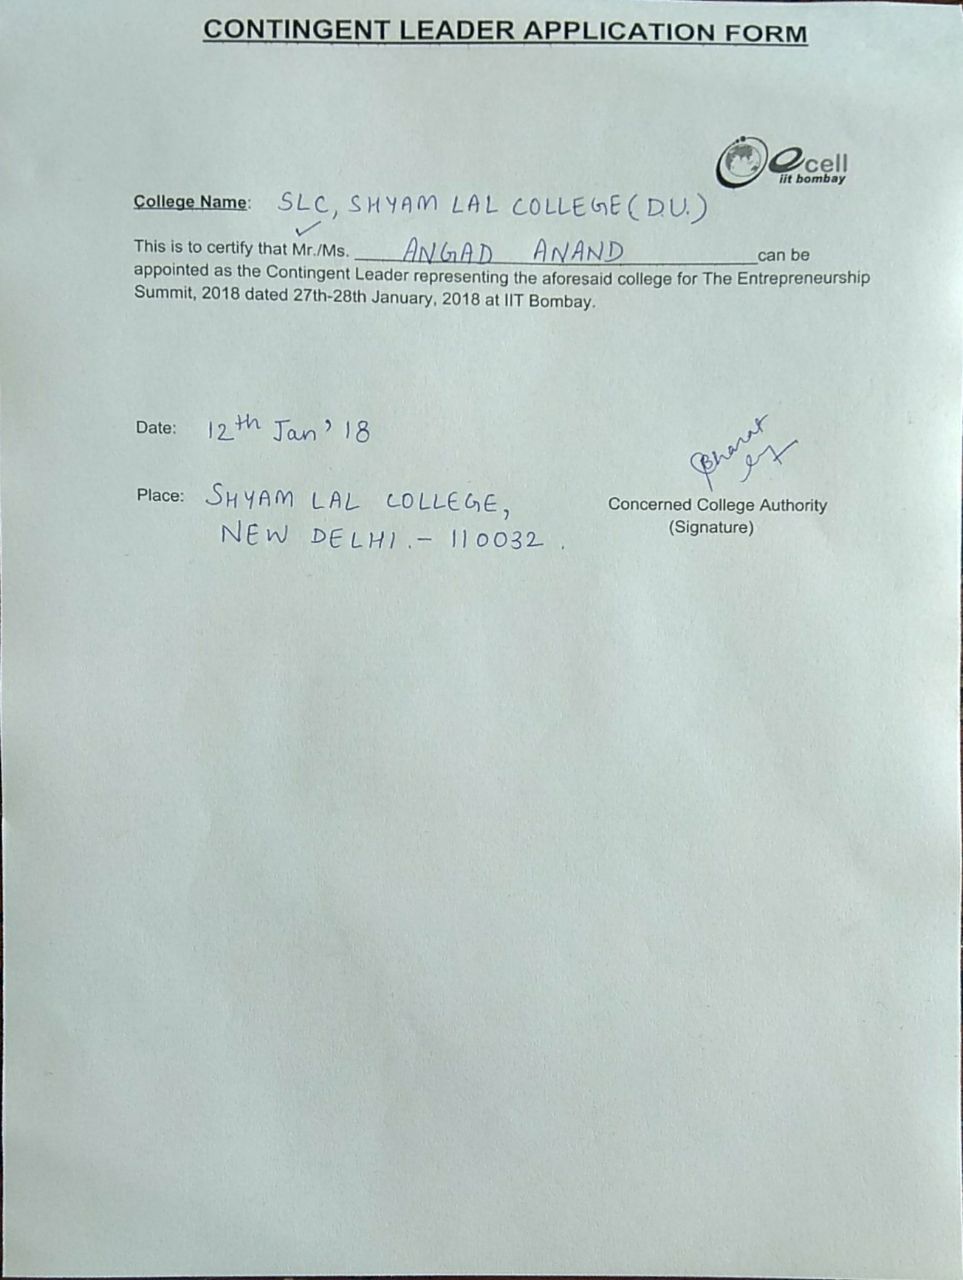 CONTINGENT LEADER APPLICATION FORM
ecell
iit bombay
College Name: SLC, SHYAM LAL COLLEGE (D.U.)
This is to certify that Mr./Ms. ANGAD ANAND can be
appointed as the Contingent Leader representing the aforesaid college for The Entrepreneurship
Summit, 2018 dated 27th-28th January, 2018 at IIT Bombay.
Date: 12th Jan' 18
Bharat
Place: SHYAM LAL COLLEGE,
NEW DELHI.- 110032.
Concerned College Authority
(Signature)